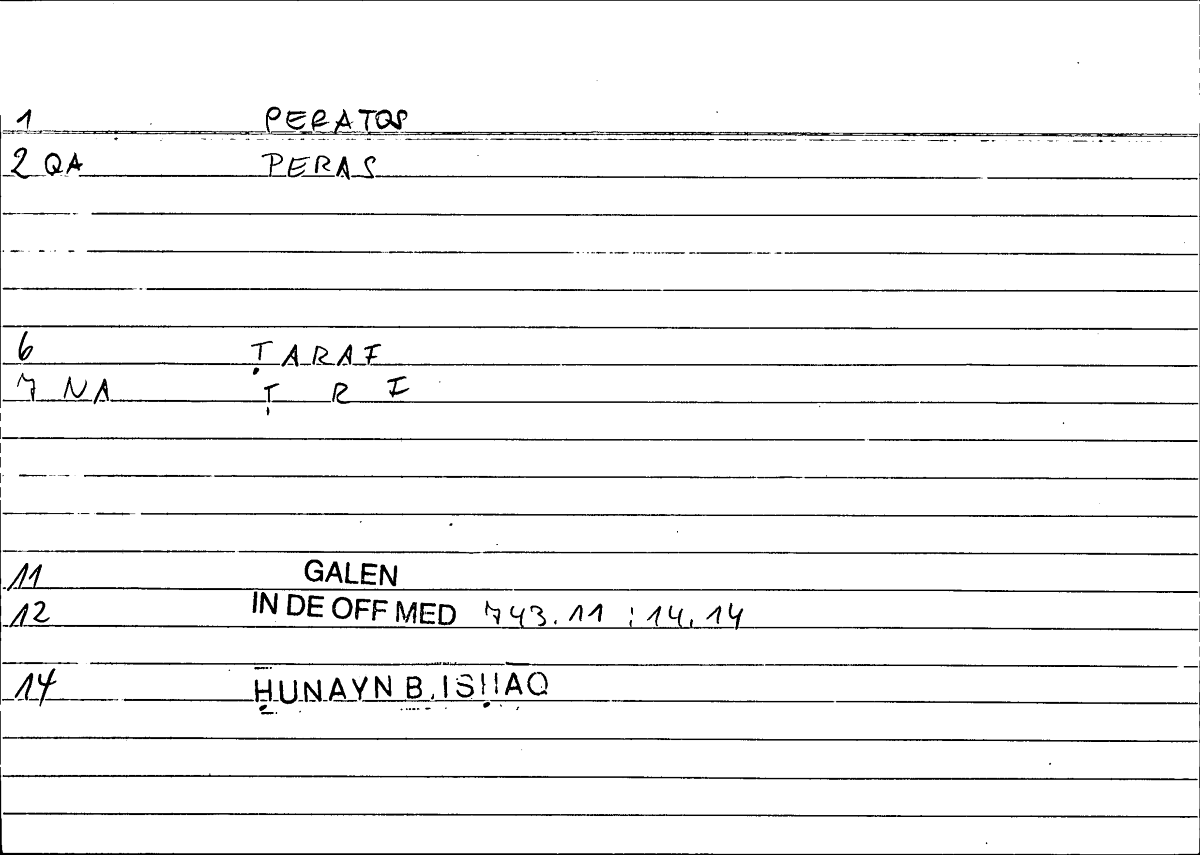 1 PERATOS
2 QA PERAS
6 ṬARAF
7 NA Ṭ R F
11 GALEN
12 IN DE OFF MED 743.11 : 14.14
14 ḤUNAYN B. ISḤAQ